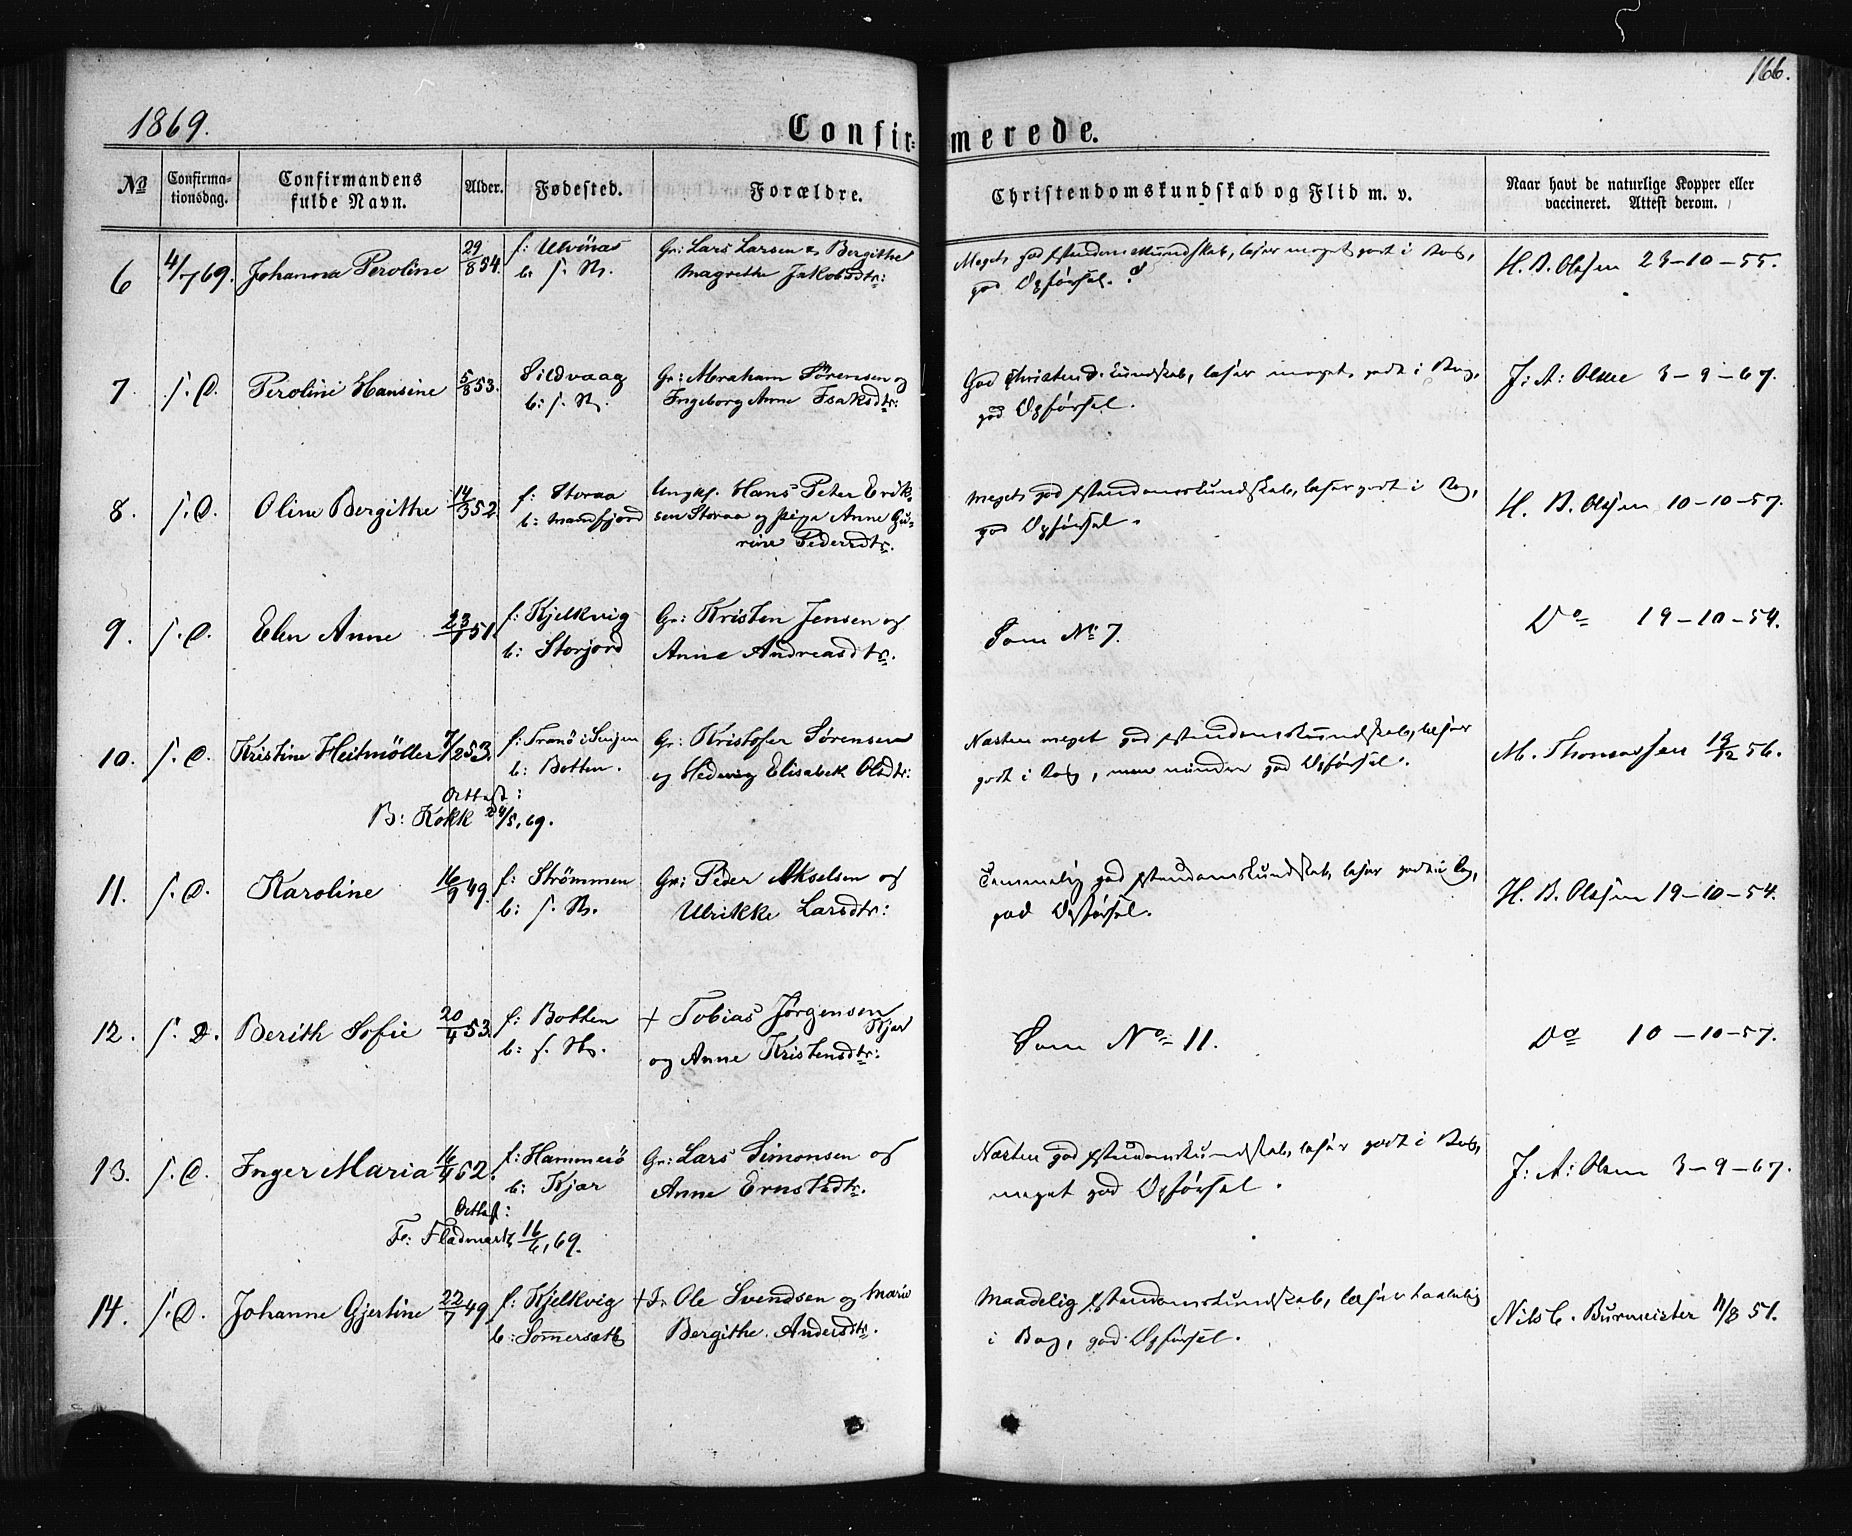 166.
1869.
Confirmerede.
No
Confirmationsdag.
Confirmandens fulde Navn.
Alder.
Fødested.
Forældre.
Christendomskundskab og Flid m. v.
Naar havt de naturlige Kopper eller vaccineret. Attest derom.
6 4/7 69. Johanna Peroline 29/8 54. f: Ulvönas Gr: Lars Larsen & Bergithe Meget god Kundskab, læser meget godt i Bog, H. B. Olsen 23-10-55.
b: s. St. Magrethe Jakobsdtr: god Opførsel.
7. s. D. Peroline Hansine 5/8 53. Sildvaag Gr: Abraham Sørensen og God Christend. kundskab, læser meget godt i Bog, J: A: Olsen 3-9-67.
b: s. St. Ingeborg Anne Isaksdtr: god Opførsel.
8. s. D. Oline Bergithe 14/3 52 f: Storaa Ungkf. Hans Peter Erik- Meget god Kristendomskundskab, læser godt i Bog, H. B. Olsen 10-10-57.
b: Mandfjord sen Storaa og pige Anne Gu- god Opførsel.
rine Pedersdtr.
9. s. D. Elen Anne 23/1 51. f: Kjelkvig Gr: Kristen Jensen og Som No 7. Do 19-10-54.
b: Storjord Anne Andreasdtr.
10. s. D. Kristine Heitmöller 7/2 53. f: Tranö i Senjen Gr: Kristofer Sørensen Næsten meget god Kristendomskundskab, læser M. Thomassen 19/12 56.
b: Botten. og Hedevig Elisabek Olsdtr: godt i Bog, men mindre god Opførsel.
Attest:
B: Kokk 24/5, 69.
11. s. D. Karoline 16/9 49. f: Strömmen Gr: Peder Akselsen og Temmelig god Kristendomskundskab, læser godt i Bog, H. B. Olsen 19-10-54.
b: s. St. Ulrikke Larsdtr: god Opførsel.
12. s. D. Berith Sofie 20/4 53. f: Botten + Tobias Jørgensen Kjør Som No 11. Do 10-10-57.
b: s. St. og Anne Kristensdtr:
13. s. D. Inger Maria 16/4 52. f: Hammerö Gr: Lars Simonsen og Næsten god Kristendomskundskab, læser godt i Bog, J: A: Olsen 3-9-67.
b: Kjør Anne Ernstsdtr. meget god Opførsel.
Attest:
Fr: Fladmark 16/6, 69.
14. s. D. Johanne Gjertine 22/7 49. f: Kjelkvig + Fr Ole Svendsen og Marie Maadelig Kristendomskundskab, læser taalelig Nils C. Burmeister 11/8 51.
b: Sommersæth Bergithe Andersdtr. i Bog, god Opførsel.